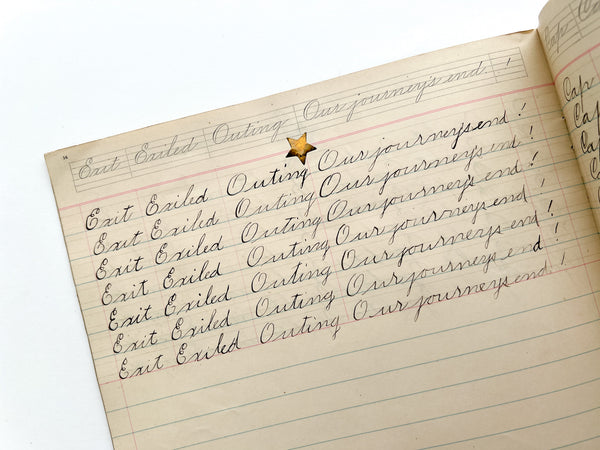 Exit Exiled Outing Our journey's end !
Exit Exiled Outing Our journeys end !
Exit Exiled Outing Our journeys end !
Exit Exiled Outing Our journeys end !
Exit Exiled Outing Our journeys end !
Exit Exiled Outing Our journeys end !
Exit Exiled Outing Our journeys end !
Exit Exiled Outing Our journeys end !
Cap
Cap
Cap
Cap